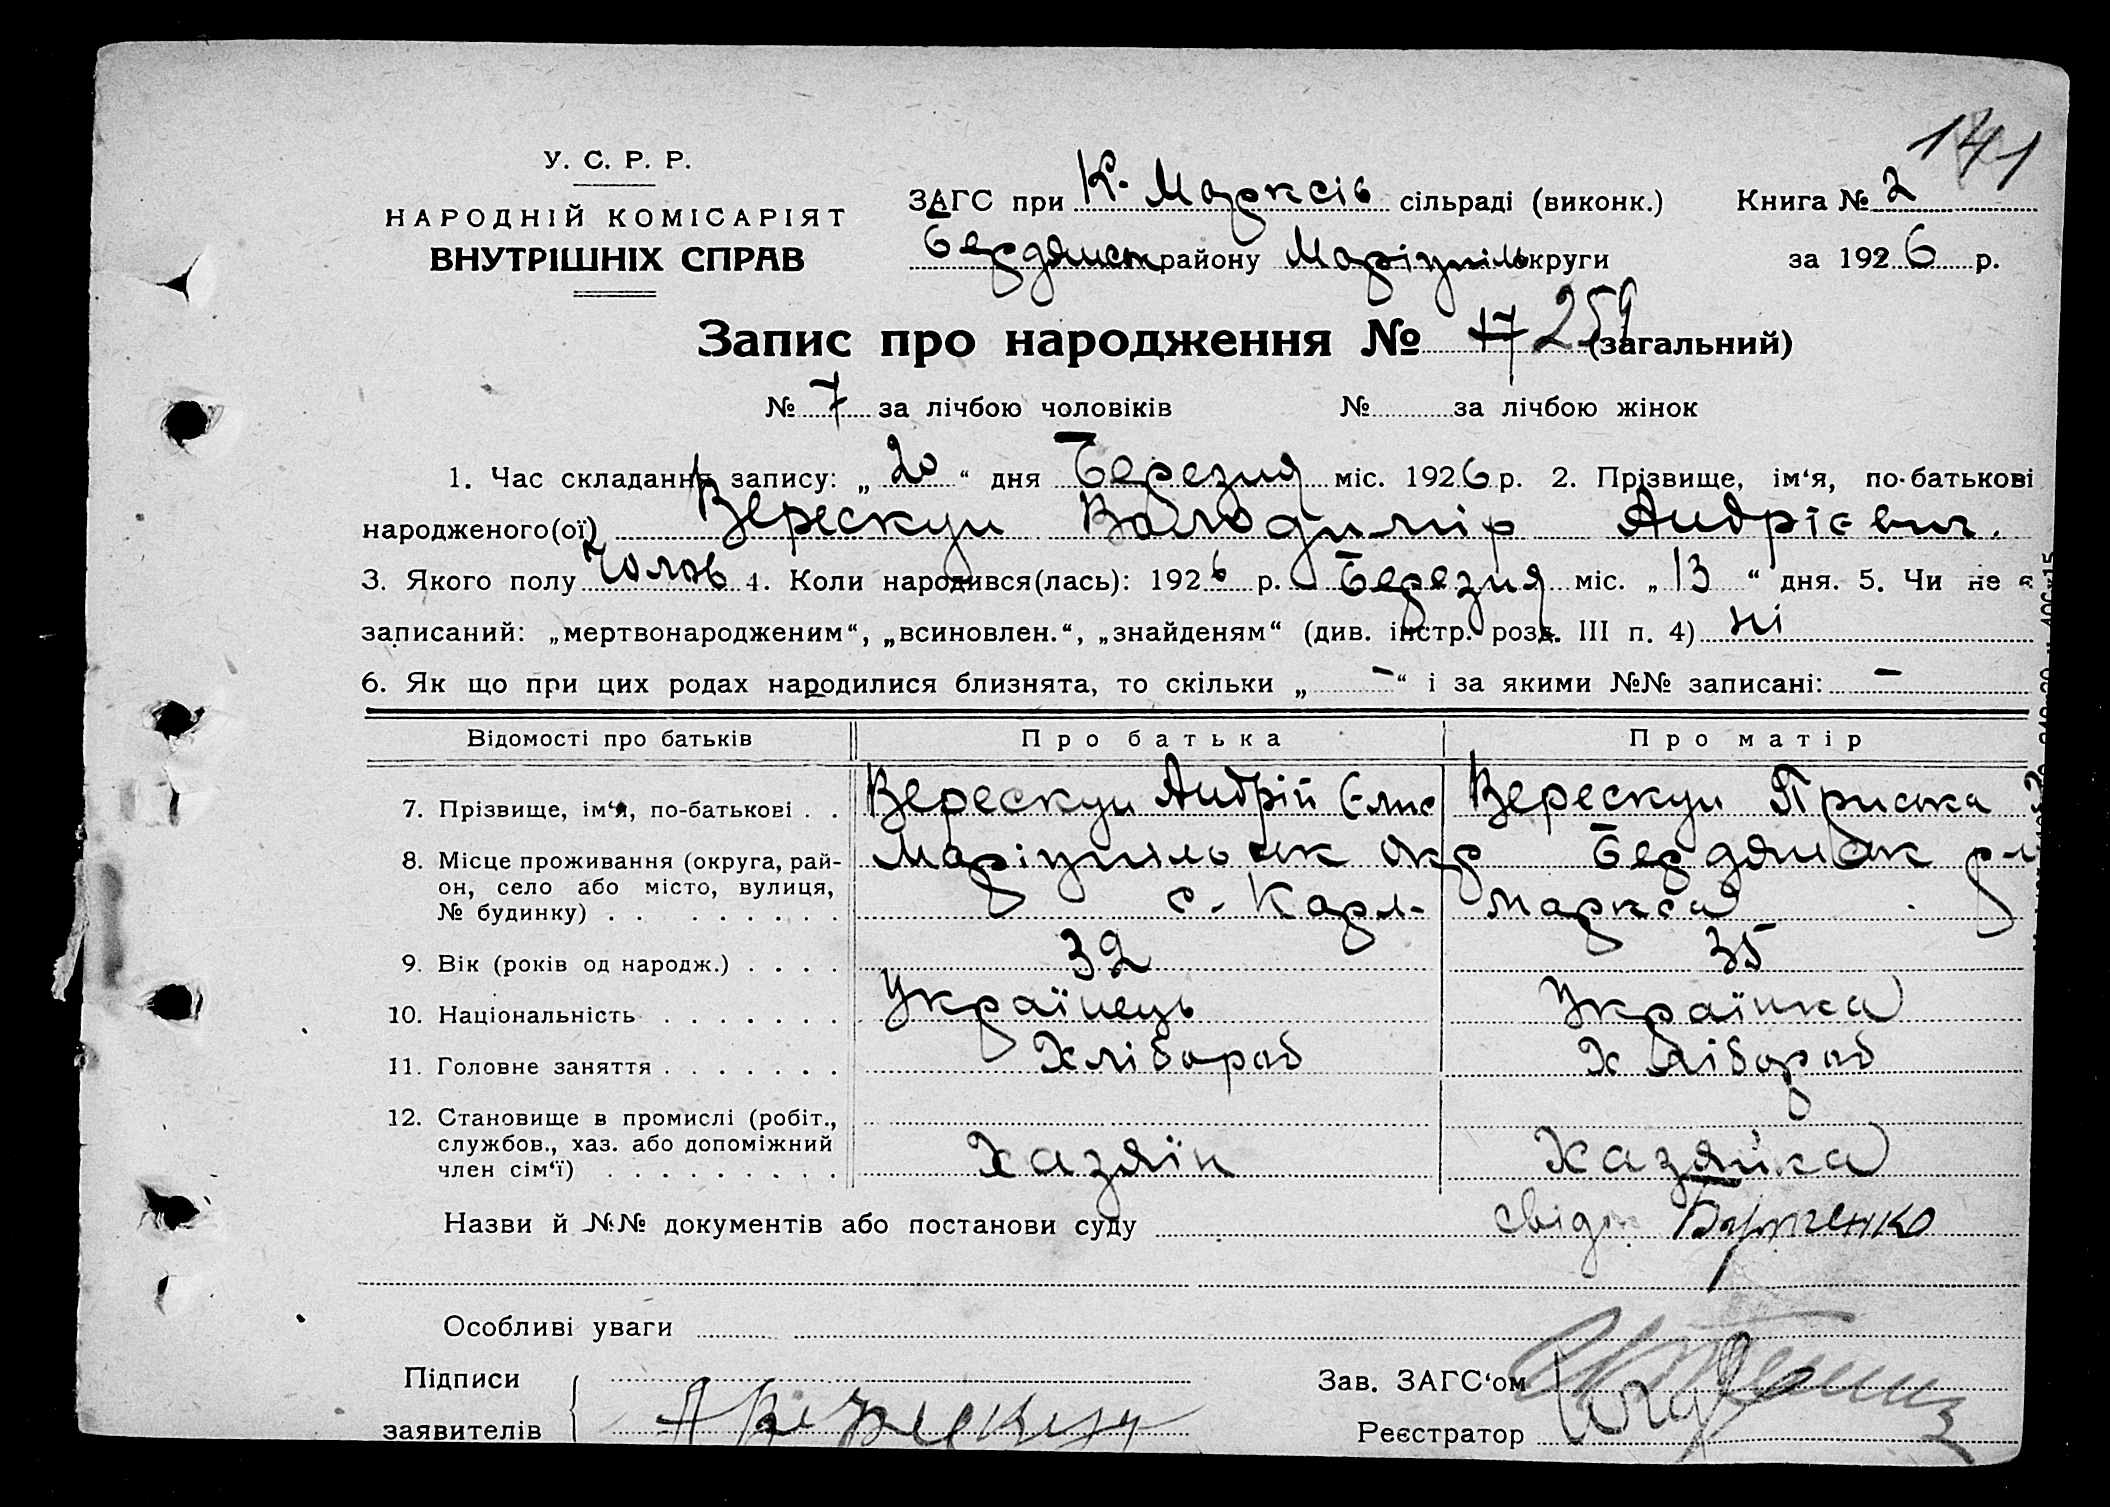 141
У. С. Р. Р.
НАРОДНІЙ КОМІСАРІЯТ
ВНУТРІШНІХ СПРАВ
ЗАГС при К. Марксів сільраді (виконк.) Книга № 2
Бердянськ району Маріупіль округи за 1926 р.
Запис про народження № 17 259 (загальний)
№ 7 за лічбою чоловіків № за лічбою жінок
1. Час складання запису: „ 20 “ дня Березня міс. 1926 р. 2. Прізвище, ім‘я, по-батькові
народженого(ої) Верескун Володимір Андрієвич.
3. Якого полу Чолов 4. Коли народився(лась): 1926 р. Березня міс. „ 13 “ дня. 5. Чи не є
записаний: „мертвонародженим“, „всиновлен.“, „знайденям“ (див. інстр. розд. III п. 4) ні
6. Як що при цих родах народилися близнята, то скільки „ – “ і за якими №№ записані: –
Відомості про батьків Про батька Про матір
7. Прізвище, ім‘я, по-батькові . . Верескун Андрій Єлис Верескун Приська
8. Місце проживання (округа, рай- Маріупільськ окр Бердянськ р-н
он, село або місто, вулиця,
№ будинку) . . с. Карл- Маркса
9. Вік (років од народж.) . . . . 32 35
10. Національність . . . . . . . Українець Українка
11. Головне заняття . . . . . . . Хлібороб Хлібороб
12. Становище в промислі (робіт.,
службов., хаз. або допоміжний
член сім‘ї) . . . . . . . . . Хазяїн Хазяйка
Назви й №№ документів або постанови суду
Особливі уваги
Підписи
заявителів А Верескун
Зав. ЗАГС‘ом
Реєстратор